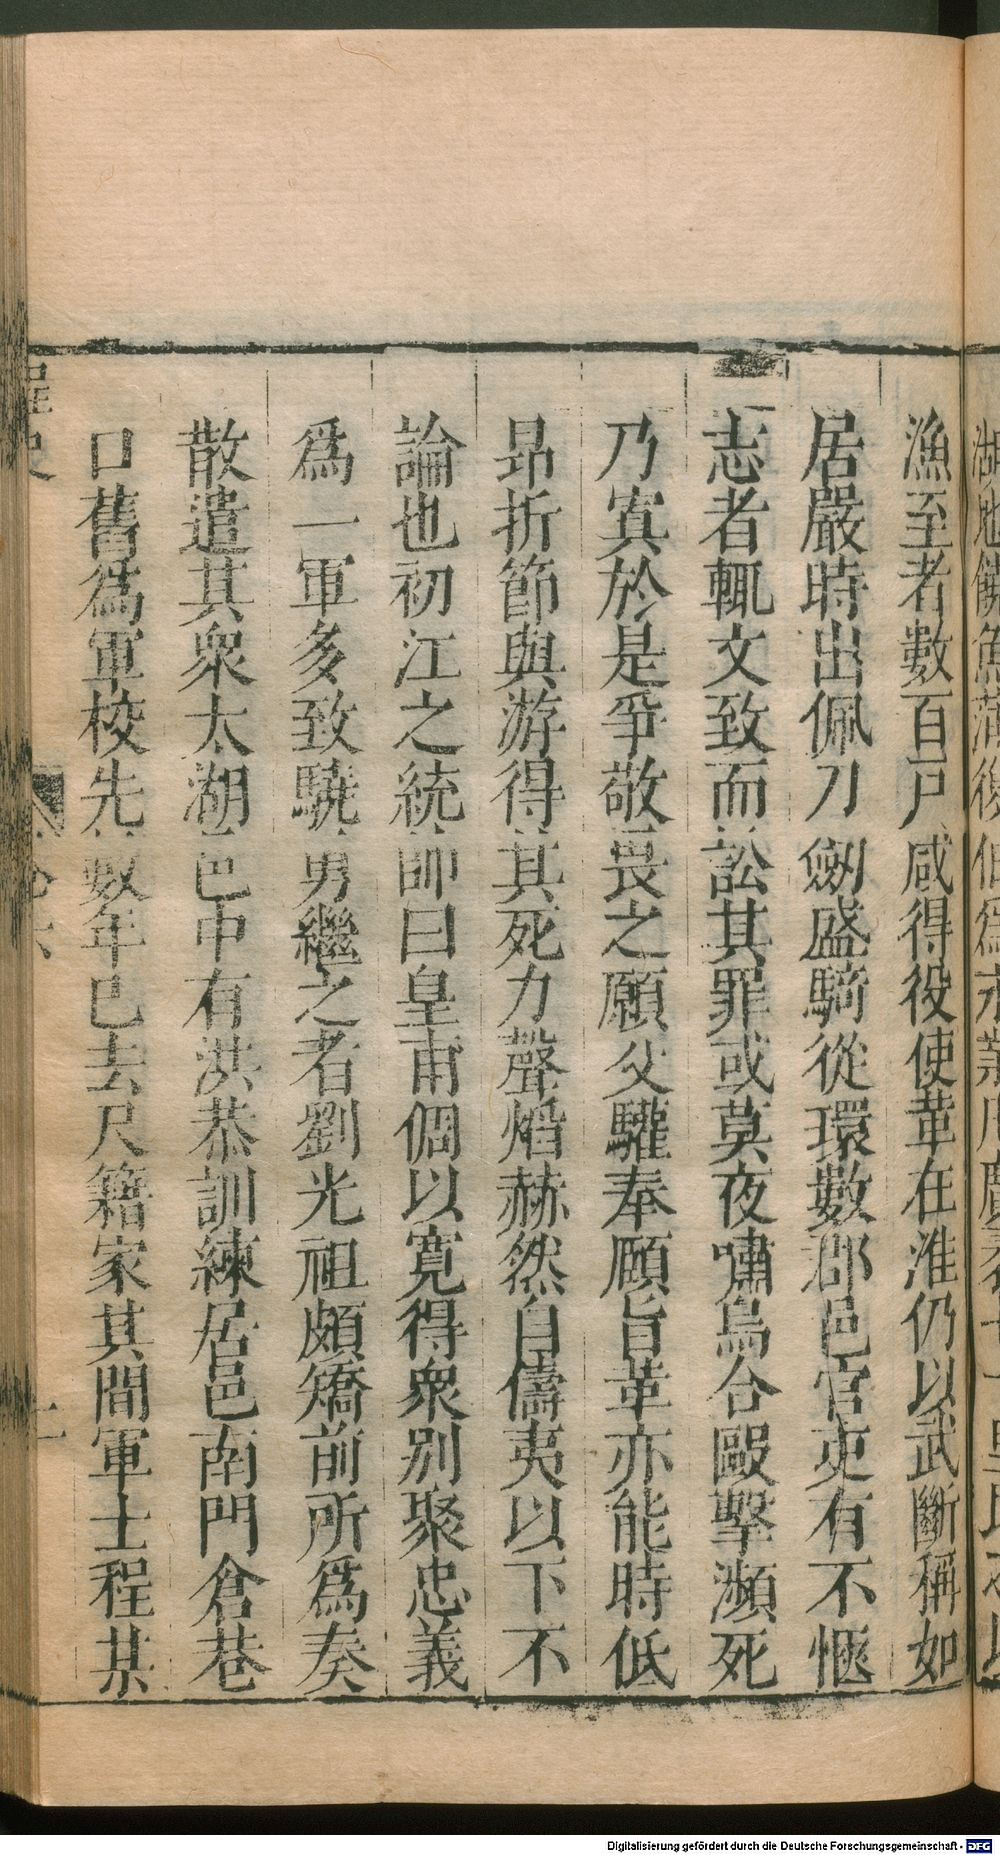 漁至者數百戶咸得役使革在淮仍以武斷稱如
居嚴時出佩刀劒盛騎從環數郡邑官吏有不愜
志者輒文致而訟其罪或莫夜嘯烏合毆擊瀕死
乃寘於是爭敬畏之願父驩奉願旨革亦能時低
昂折節與游得其死力聲熖赫然自儔夷以下不
論也初江之統帥曰皇甫倜以寛得衆別聚忠義
爲一軍多致驍勇繼之者劉光祖頗矯前所爲奏
散遣其衆太湖邑中有洪恭訓練居邑南門倉巷
口舊爲軍校先數年已去尺籍家其間軍士程某
桯史
卷六
二
Digitalisierung gefördert durch die Deutsche Forschungsgemeinschaft - DFG